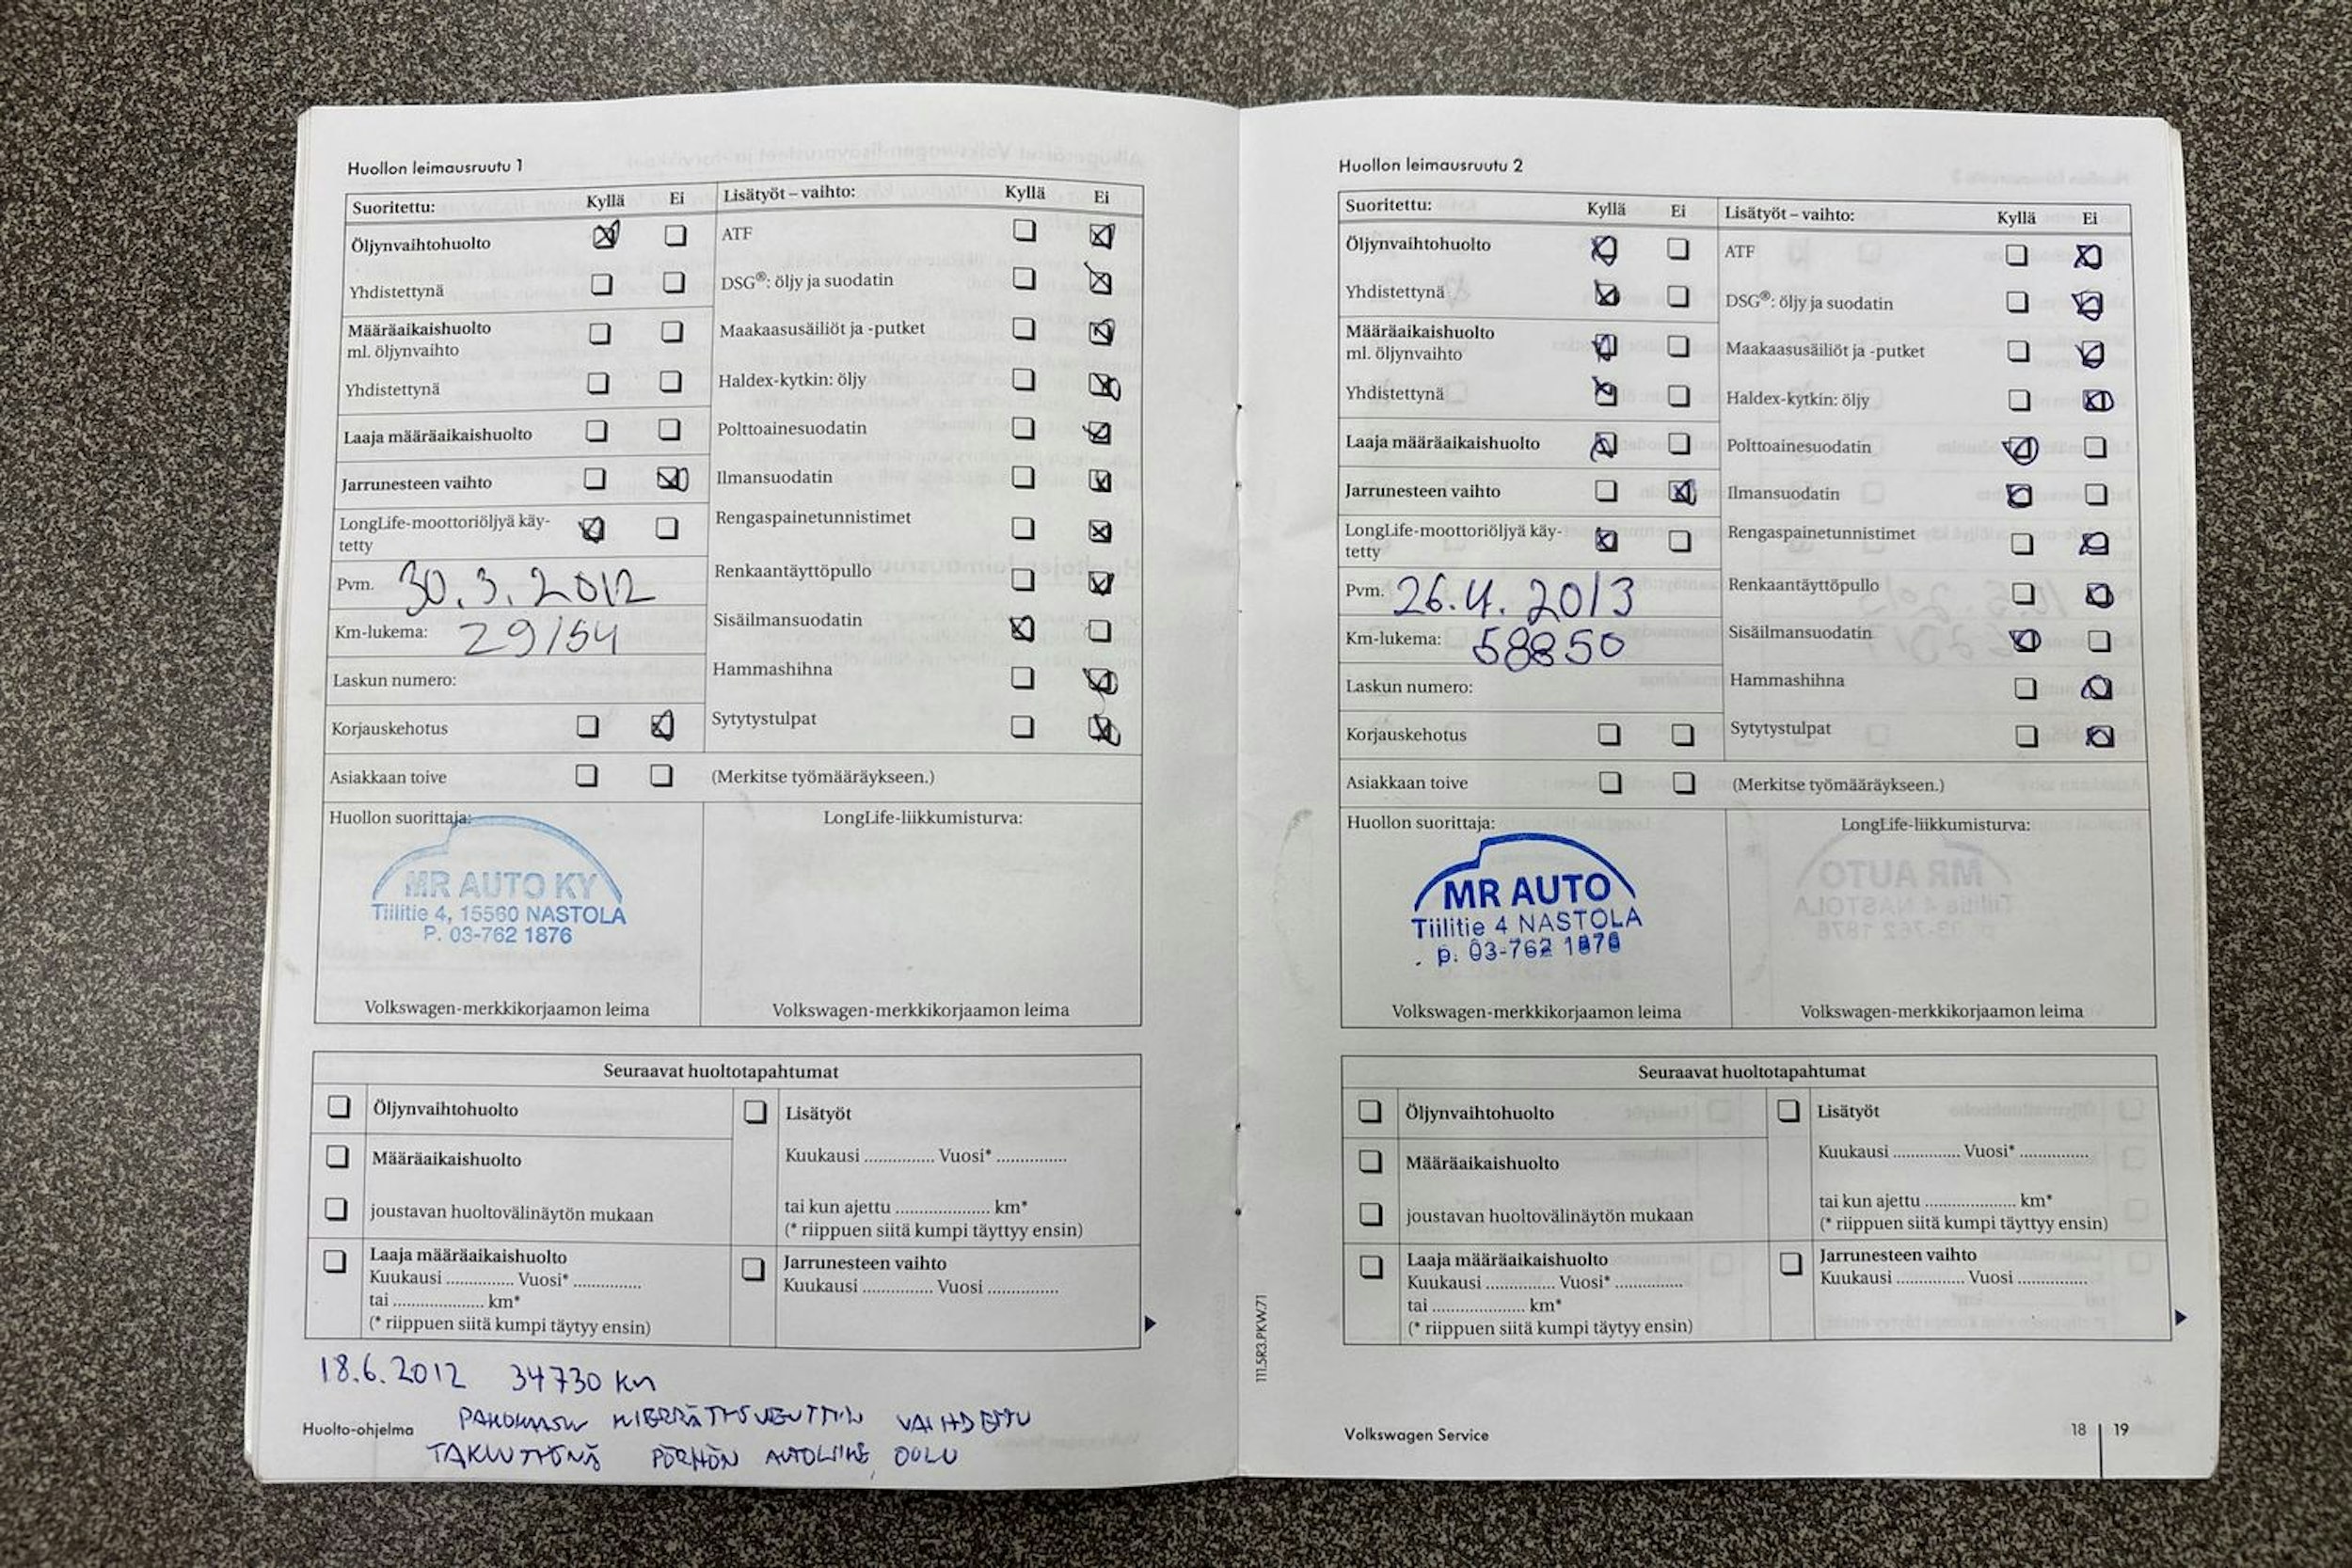 Huollon leimausruutu 1
Suoritettu: Kyllä Ei Lisätyöt – vaihto: Kyllä Ei
Öljynvaihtohuolto ATF
Yhdistettynä DSG®: öljy ja suodatin
Määräaikaishuolto Maakaasusäiliöt ja -putket
ml. öljynvaihto
Yhdistettynä Haldex-kytkin: öljy
Laaja määräaikaishuolto Polttoainesuodatin
Jarrunesteen vaihto Ilmansuodatin
LongLife-moottoriöljyä käy- Rengaspainetunnistimet
tetty
Pvm. 30.3.2012 Renkaantäyttöpullo
Km-lukema: 29154 Sisäilmansuodatin
Laskun numero: Hammashihna
Korjauskehotus Sytytystulpat
Asiakkaan toive (Merkitse työmääräykseen.)
Huollon suorittaja: LongLife-liikkumisturva:
MR AUTO KY
Tiilitie 4, 15560 NASTOLA
P. 03-762 1876
Volkswagen-merkkikorjaamon leima Volkswagen-merkkikorjaamon leima
Seuraavat huoltotapahtumat
Öljynvaihtohuolto Lisätyöt
Määräaikaishuolto Kuukausi .............. Vuosi* ..............
joustavan huoltovälinäytön mukaan tai kun ajettu ................... km*
(* riippuen siitä kumpi täyttyy ensin)
Laaja määräaikaishuolto Jarrunesteen vaihto
Kuukausi .............. Vuosi* .............. Kuukausi .............. Vuosi ..............
tai ................... km*
(* riippuen siitä kumpi täytyy ensin)
18.6.2012 34730 km
PAKOKAASUN KIERRÄTYSVENTTIILI VAIHDETTU
TAKUUTYÖNÄ PÖRHÖN AUTOLIIKE, OULU
Huolto-ohjelma
Huollon leimausruutu 2
Suoritettu: Kyllä Ei Lisätyöt – vaihto: Kyllä Ei
Öljynvaihtohuolto ATF
Yhdistettynä DSG®: öljy ja suodatin
Määräaikaishuolto Maakaasusäiliöt ja -putket
ml. öljynvaihto
Yhdistettynä Haldex-kytkin: öljy
Laaja määräaikaishuolto Polttoainesuodatin
Jarrunesteen vaihto Ilmansuodatin
LongLife-moottoriöljyä käy- Rengaspainetunnistimet
tetty
Pvm. 26.4.2013 Renkaantäyttöpullo
Km-lukema: 58850 Sisäilmansuodatin
Laskun numero: Hammashihna
Korjauskehotus Sytytystulpat
Asiakkaan toive (Merkitse työmääräykseen.)
Huollon suorittaja: LongLife-liikkumisturva:
MR AUTO
Tiilitie 4 NASTOLA
p. 03-762 1876
Volkswagen-merkkikorjaamon leima Volkswagen-merkkikorjaamon leima
Seuraavat huoltotapahtumat
Öljynvaihtohuolto Lisätyöt
Määräaikaishuolto Kuukausi .............. Vuosi* ..............
joustavan huoltovälinäytön mukaan tai kun ajettu ................... km*
(* riippuen siitä kumpi täyttyy ensin)
Laaja määräaikaishuolto Jarrunesteen vaihto
Kuukausi .............. Vuosi* .............. Kuukausi .............. Vuosi ..............
tai ................... km*
(* riippuen siitä kumpi täytyy ensin)
111.5R3.PKW.71
Volkswagen Service 18 19